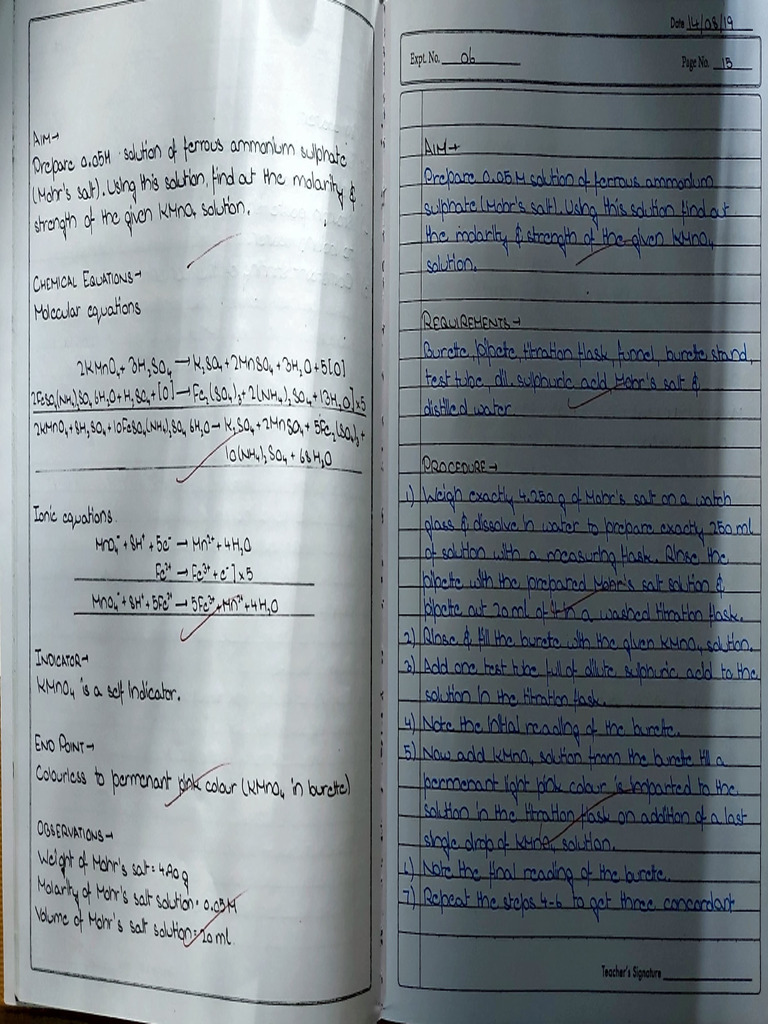 AIM→
Prepare 0.05M solution of ferrous ammonium sulphate
(Mohr's salt). Using this solution, find out the molarity &
strength of the given KMnO₄ solution.
CHEMICAL EQUATIONS→
Molecular equations
2KMnO₄ + 3H₂SO₄ → K₂SO₄ + 2MnSO₄ + 3H₂O + 5[O]
2FeSO₄(NH₄)₂SO₄ 6H₂O + H₂SO₄ + [O] → Fe₂(SO₄)₃ + 2(NH₄)₂SO₄ + 13H₂O] x5
2KMnO₄ + 8H₂SO₄ + 10FeSO₄(NH₄)₂SO₄ 6H₂O → K₂SO₄ + 2MnSO₄ + 5Fe₂(SO₄)₃ +
10(NH₄)₂SO₄ + 68H₂O
Ionic equations
MnO₄⁻ + 8H⁺ + 5e⁻ → Mn²⁺ + 4H₂O
Fe²⁺ → Fe³⁺ + e⁻] x5
MnO₄⁻ + 8H⁺ + 5Fe²⁺ → 5Fe³⁺ + Mn²⁺ + 4H₂O
INDICATOR→
KMnO₄ is a self Indicator.
END POINT→
Colourless to permenant pink colour (KMnO₄ in burette)
OBSERVATIONS→
Weight of Mohr's salt = g
Molarity of Mohr's salt solution = 0.05M
Volume of Mohr's salt solution = 20ml
Date 14/08/19
Expt. No. 06
Page No. 15
AIM→
Prepare 0.05M solution of ferrous ammonium
sulphate (Mohr's salt). Using this solution find out
the molarity & strength of the given KMnO₄
solution.
REQUIREMENTS→
Burette, pipette, titration flask, funnel, burette stand,
test tube, dil. sulphuric acid, Mohr's salt &
distilled water
PROCEDURE→
1) Weigh exactly 4.250g of Mohr's salt on a watch
glass & dissolve in water to prepare exactly 250ml
of solution with a measuring flask. Rinse the
pipette with the prepared Mohr's salt solution &
pipette out 20ml of it in a washed titration flask.
2) Rinse & fill the burette with the given KMnO₄ solution.
3) Add one test tube full of dilute sulphuric acid to the
solution in the titration flask.
4) Note the initial reading of the burette.
5) Now add KMnO₄ solution from the burette till a
permenant light pink colour is imparted to the
solution in the titration flask on addition of a last
single drop of KMnO₄ solution.
6) Note the final reading of the burette.
7) Repeat the steps 4-6 to get three concordant
Teacher's Signature